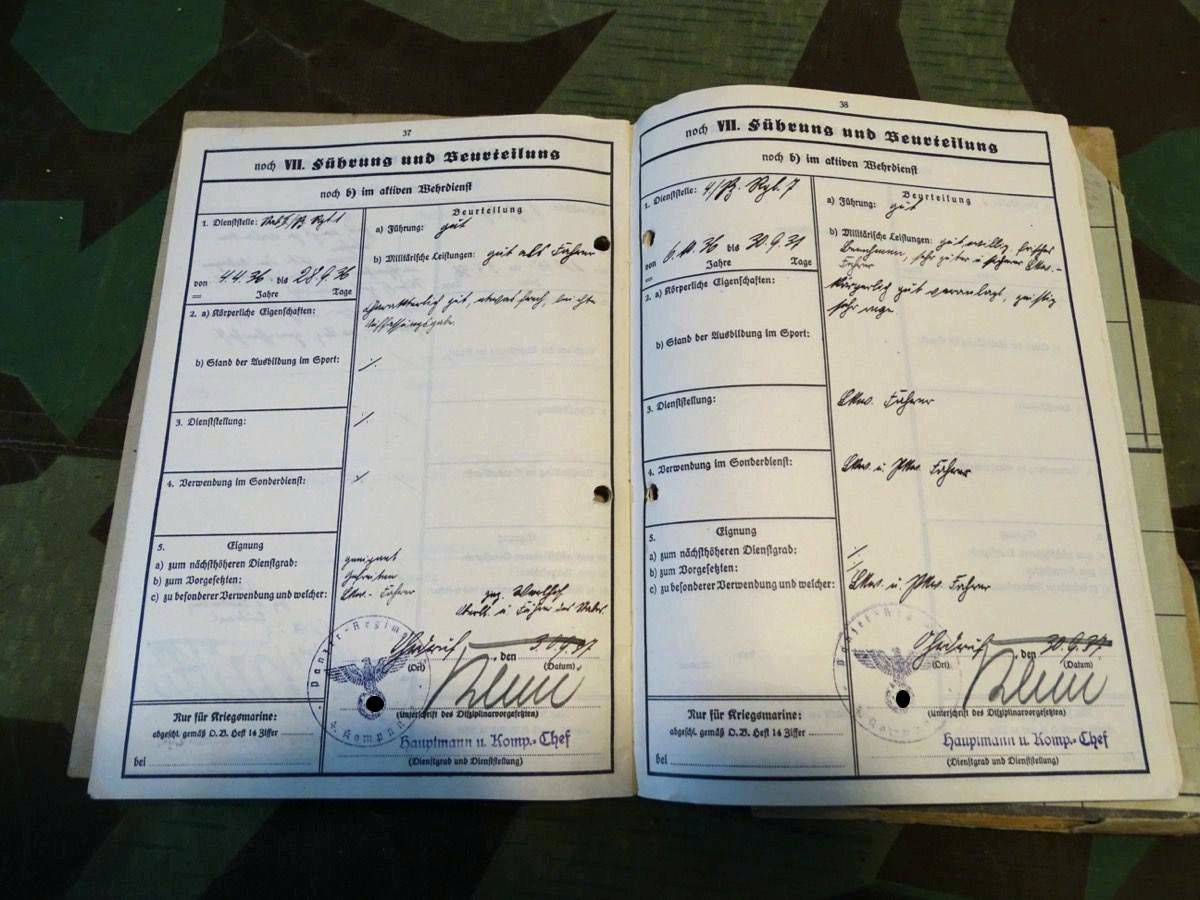 37
noch VII. Führung und Beurteilung
noch b) im aktiven Wehrdienst
1. Dienststelle:
von 4.4.36 bis 28.9.36
Jahre Tage
Beurteilung
a) Führung: gut
b) Militärische Leistungen: gut als Fahrer
2. a) Körperliche Eigenschaften:
gut, etwas
b) Stand der Ausbildung im Sport: ./.
3. Dienststellung: ./.
4. Verwendung im Sonderdienst: ./.
5. Eignung
a) zum nächsthöheren Dienstgrad: geeignet
b) zum Vorgesetzten: Gefreiten
c) zu besonderer Verwendung und welcher: Lkw.-Fahrer
gez.
Panzer-Regim
4. Kompanie
Ohrdruf, den 30.9.37
(Ort) (Datum)
(Unterschrift des Disziplinarvorgesetzten)
Hauptmann u. Komp.-Chef
(Dienstgrad und Dienststellung)
Nur für Kriegsmarine:
abgeschl. gemäß O.B. Heft 14 Ziffer
bei
38
noch VII. Führung und Beurteilung
noch b) im aktiven Wehrdienst
1. Dienststelle: 4/Pz. Rgt. 7
bis
Jahre Tage
Beurteilung
a) Führung: gut
b) Militärische Leistungen: gut, willig,
Benehmen, sehr guter u. sicherer Lkw.-
Fahrer
2. a) Körperliche Eigenschaften:
Körperlich gut veranlagt, geistig
sehr rege
b) Stand der Ausbildung im Sport:
3. Dienststellung: Lkw. Fahrer
4. Verwendung im Sonderdienst: Lkw. u. Pkw. Fahrer
5. Eignung
a) zum nächsthöheren Dienstgrad: ./.
b) zum Vorgesetzten: ./.
c) zu besonderer Verwendung und welcher: Lkw. u. Pkw. Fahrer
Ohrdruf, den 30.9.37
(Ort) (Datum)
(Unterschrift des Disziplinarvorgesetzten)
Hauptmann u. Komp.-Chef
(Dienstgrad und Dienststellung)
Nur für Kriegsmarine:
abgeschl. gemäß O.B. Heft 14 Ziffer
bei